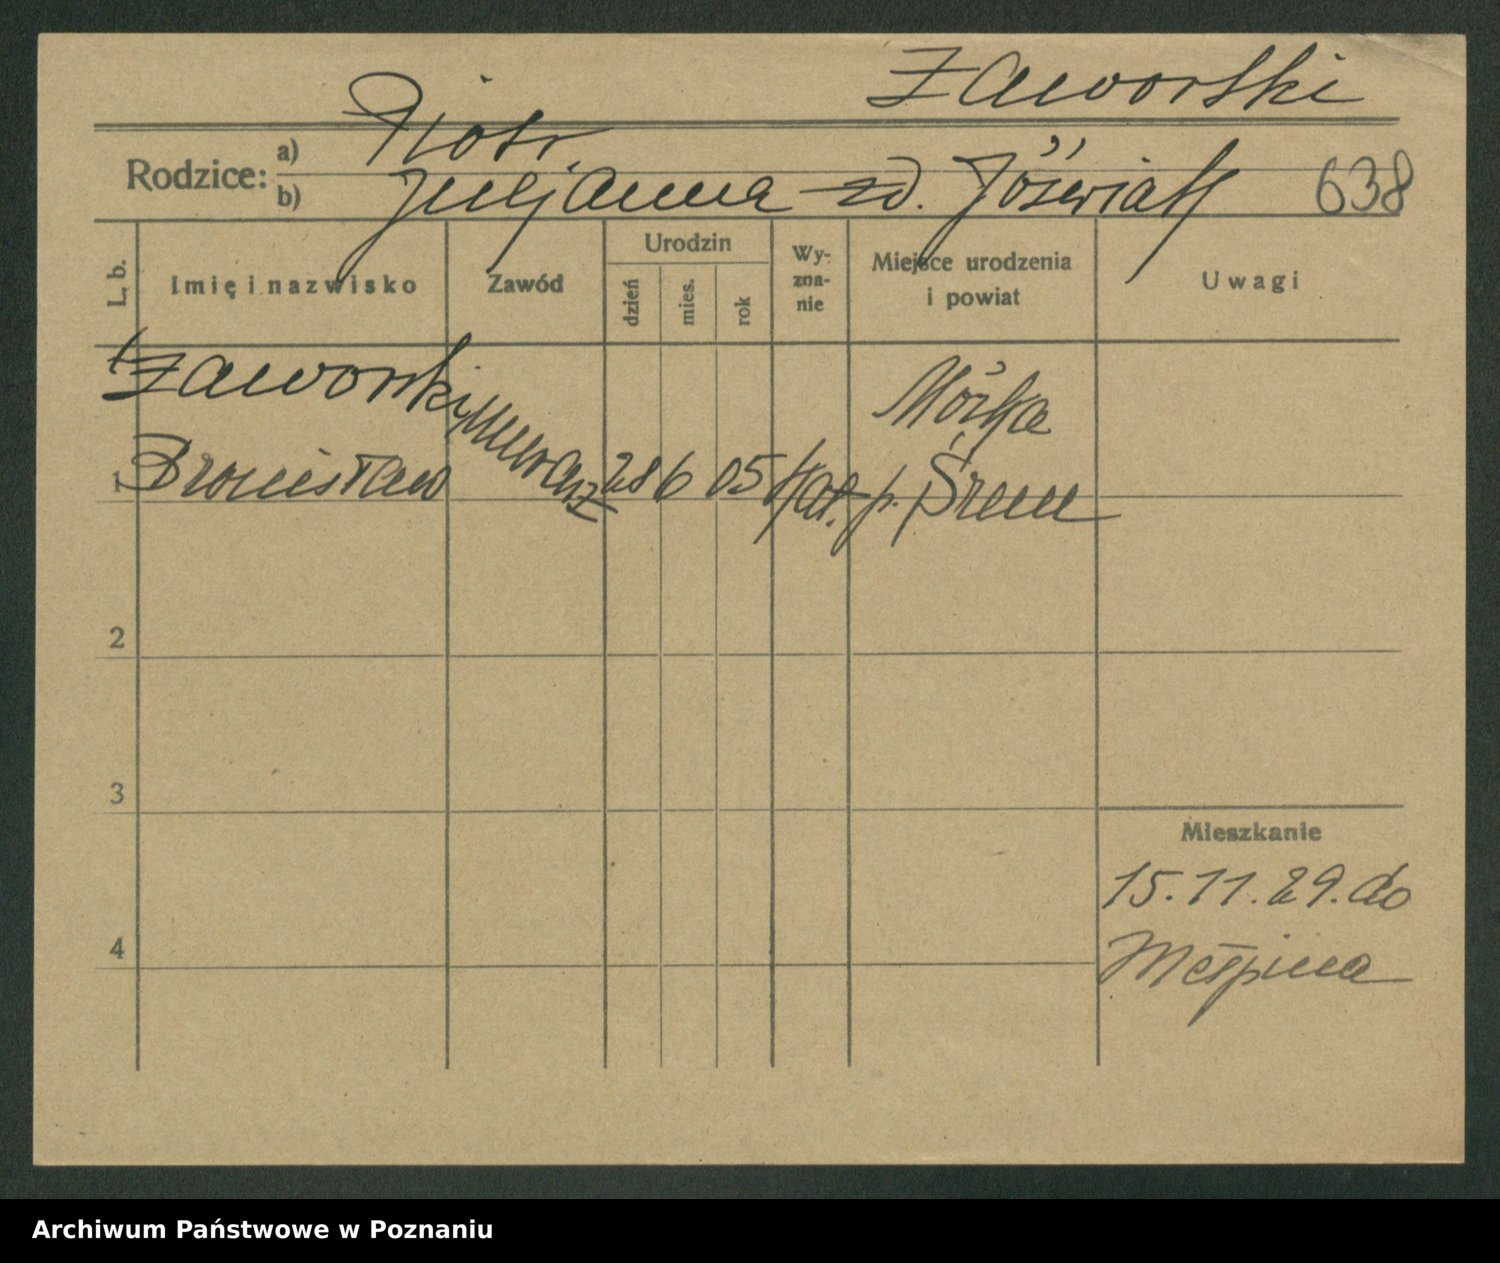 Zaworski
Rodzice: a) Piotr
b) Juljanna zd. Jóźwiak 638
L. b. Imię i nazwisko Zawód Urodzin dzień mies. rok Wy-zna-nie Miejsce urodzenia i powiat Uwagi
Zaworski Mórka
1 Bronisław murarz 28 6 05 kat. p. Śrem
2
3
Mieszkanie
15.11.29. do
4 Mełpina
Archiwum Państwowe w Poznaniu